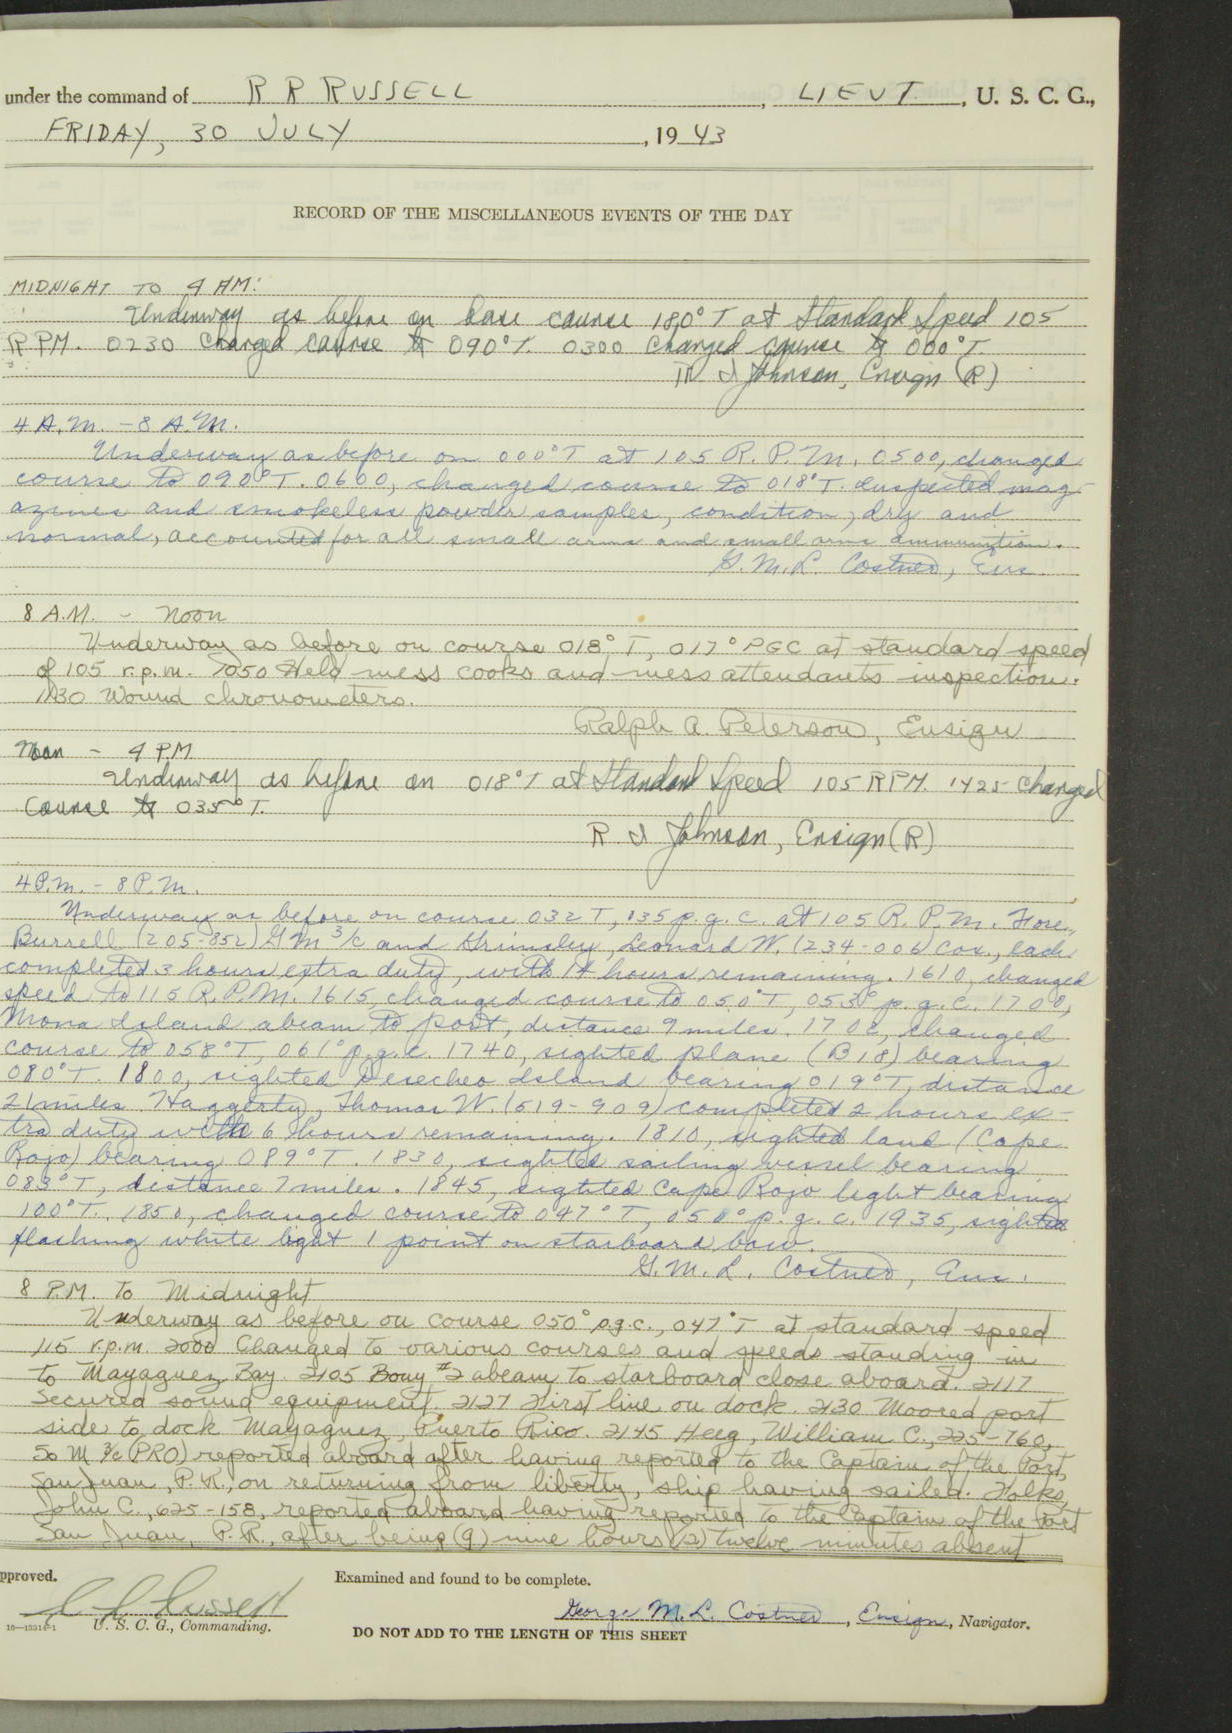 under the command of R R RUSSELL, LIEUT., U. S. C. G.,
FRIDAY, 30 JULY, 1943
RECORD OF THE MISCELLANEOUS EVENTS OF THE DAY
MIDNIGHT TO 4 AM:
Underway as before on base course 180°T at Standard Speed 105
RPM. 0230 Changed course to 090°T. 0300 Changed course to 000°T.
R J Johnson, Ensign (R)
4 A.M. - 8 A.M.
Underway as before on 000°T at 105 R.P.M. 0500, changed
course to 090°T. 0600, changed course to 018°T. Inspected mag-
azines and smokeless powder samples, condition, dry and
normal, accounted for all small arms and small arms ammunition.
G.M.L. Costner, Ens.
8 A.M. - Noon
Underway as before on course 018°T, 017° PGC at standard speed
of 105 r.p.m. 1050 Held mess cooks and mess attendants inspection.
1130 Wound chronometers.
Ralph A. Peterson, Ensign
Noon - 4 PM
Underway as before on 018°T at Standard Speed 105 RPM. 1425 Changed
Course to 035°T.
R J Johnson, Ensign (R)
4 P.M. - 8 P.M.
Underway as before on course 032 T, 035 p.g.c. at 105 R.P.M.
Burrell (205-852) GM 3/c and Grimsley, Leonard W. (234-006) Cox., each
completed 3 hours extra duty, with 14 hours remaining. 1610, changed
speed to 115 R.P.M. 1615, changed course to 050°T, 053° p.g.c. 1700,
Mona Island abeam to port, distance 9 miles. 1702, changed
course to 058°T, 061° p.g.c. 1740, sighted plane (B18) bearing
080°T. 1800, sighted Desecheo Island bearing 019°T, distance
21 miles. Haggerty, Thomas W. (519-909) completed 2 hours ex-
tra duty with 6 hours remaining. 1810, sighted land (Cape
Rojo) bearing 089°T. 1830, sighted sailing vessel bearing
083°T, distance 7 miles. 1845, sighted Cape Rojo light bearing
100°T. 1850, changed course to 047°T, 050° p.g.c. 1935, sighted
flashing white light 1 point on starboard bow.
G.M.L. Costner, Ens.
8 P.M. To Midnight
Underway as before on course 050° p.g.c., 047°T at standard speed
115 r.p.m. 2000 Changed to various courses and speeds standing in
to Mayaguez Bay. 2105 Bouy #2 abeam to starboard close aboard. 2117
Secured sound equipment. 2127 First line on dock. 2130 Moored port
side to dock Mayaguez, Puerto Rico. 2145 Heeg, William C., 225-760,
So M 3/c (PRO) reported aboard after having reported to the Captain of the Port,
San Juan, P.R., on returning from liberty, ship having sailed. Folks,
John C., 625-158, reported aboard having reported to the Captain of the Port
San Juan, P.R., after being (9) nine hours (12) twelve minutes absent
pproved.
Examined and found to be complete.
R R Russell
U. S. C. G., Commanding.
George M. L. Costner, Ensign, Navigator.
16—13316-1
DO NOT ADD TO THE LENGTH OF THIS SHEET